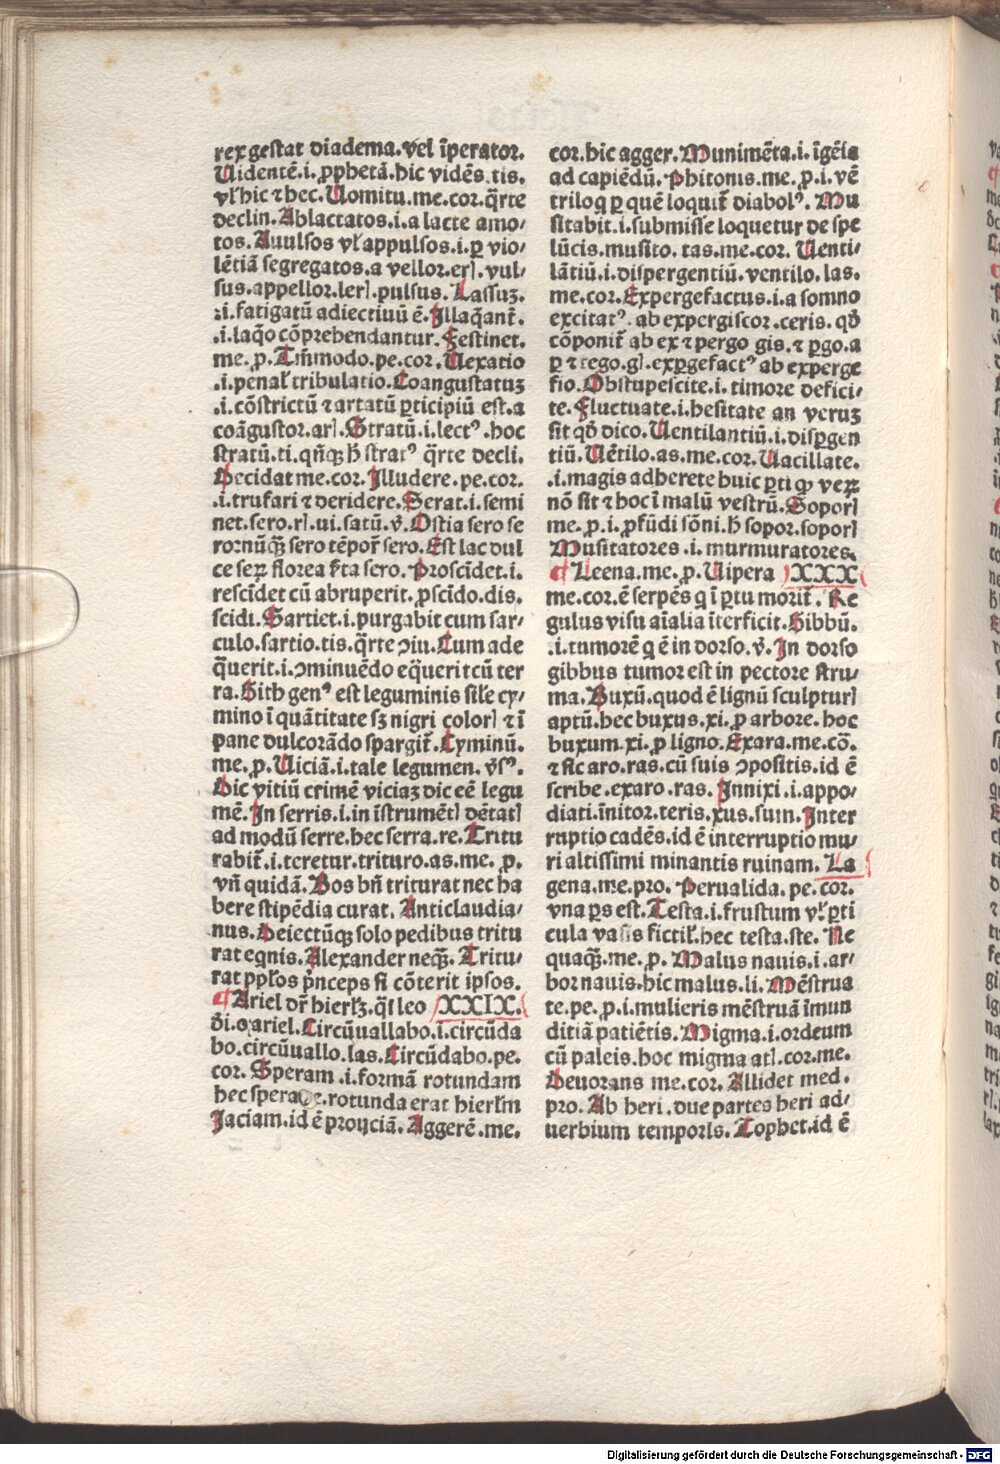 rex gestat diadema. vel īperator.
Uidentē.i. ꝓphetā. hic vidēs. tis.
vł hic ⁊ hec. Uomitu. me. cor. q̄rte
declin. Ablactatos .i. a lacte amo/
tos. Auulsos vł appulsos .i. ꝑ vio/
lētiā segregatos. a vellor. erꝭ. vul/
sus. appellor. lerꝭ. pulsus. Lassuꝫ.
.i. fatigatū adiectiuū ē. Illaq̄ant̄.
.i. laq̄o cōprehendantur. Festinet.
me. ꝓ. Tm̄modo. pe. cor. Uexatio
.i. penał tribulatio. Coangustatuꝫ
.i. cōstrictū ⁊ artatū ꝑticipiū est. a
coāgustor. arꝭ. Stratū .i. lectꝰ. hoc
stratū. ti. qn̄qꝫ h̄ stratꝰ q̄rte decli.
Decidat me. cor. Illudere. pe. cor.
.i. trufari ⁊ deridere. Serat .i. semi
net. sero. rꝭ. ui. satū. v̄. Ostia sero se
ro: nūq̄ꝫ sero tēpor̄ sero. Est lac dul
ce serꝫ florea ẜta sero. Proscīdet .i.
rescīdet cū abruperit. ꝓscīdo. dis.
scidi. Sartiet .i. purgabit cum sar/
culo. sartio. tis. q̄rte ꝯiu. Cum ade
q̄uerit .i. ꝯminuēdo eq̄uerit cū ter
ra. Gith genꝰ est leguminis siłe cy/
mino ī quātitate sꝫ nigri colorꝭ ⁊ ī
pane dulcorādo spargit̄. Cyminū.
me. ꝓ. Uiciā .i. tale legumen. v̄sꝰ.
Dic vitiū crimē viciaꝫ dic eē legu
mē. In serris .i. in īstrumētꝭ dētatꝭ
ad modū serre. hec serra. re. Tritu
rabit̄ .i. teretur. trituro. as. me. ꝓ.
vn̄ quidā. Bos bn̄ triturat nec ha
bere stipēdia curat. Anticlaudia/
nus. Deiectūqꝫ solo pedibus tritu
rat eqnis. Alexander neq̄ꝫ. Tritu/
rat ppłos p̄nceps si cōterit ipsos.
¶ Ariel dr̄ hierłꝫ. q̄si leo XXIX.
di. o ariel. Circūuallabo .i. circūda
bo. circūuallo. las. Circūdabo. pe.
cor. Speram .i. formā rotundam
hec spera. re. rotunda erat hierłm
Jaciam. id ē proijciā. Aggerē. me.
cor. hic agger. Munimēta .i. īgēia
ad capiēdū. Phitonis. me. ꝓ. i. vē
triloq ꝑ quē loquit̄ diabolꝰ. Mu
sitabit .i. submisse loquetur de spe
lūcis. musito. tas. me. cor. Uenti/
lātiū .i. dispergentiū. ventilo. las.
me. cor. Expergefactus .i. a somno
excitatꝰ. ab expergiscor. ceris. qď
cōponit̄ ab ex ⁊ pergo gis. ⁊ ꝑgo. a
ꝑ ⁊ rego. gꝭ. exꝑgefactꝰ ab experge
fio. Obstupescite .i. timore defici/
te. Fluctuate .i. hesitate an veruꝫ
sit qď dico. Uentilantiū .i. disꝑgen
tiū. Uētilo. as. me. cor. Uacillate.
.i. magis adherete huic ꝑti qꝫ verꝫ
nō sit ⁊ hoc ī malū vestrū. Soporꝭ
me. ꝓ. i. ꝓfūdi sōni. h̄ sopor. soporꝭ
Musitatores .i. murmuratores.
¶ Leena. me. ꝓ. Uipera XXX
me. cor. ē serpēs q ī ꝑtu morit̄. Re
gulus visu aīalia īterficit. Gibbū.
.i. tumorē q ē in dorso. v̄. In dorso
gibbus tumor est in pectore stru/
ma. Buxū. quod ē lignū sculpturꝭ
aptū. hec buxus. xi. ꝓ arbore. hoc
buxum. xi. ꝓ ligno. Exara. me. cō.
⁊ sic aro. ras. cū suis ꝯpositis. id ē
scribe. exaro. ras. Innixi .i. appo/
diati. īnitor. teris. xus. sum. Inter
ruptio cadēs. id ē interruptio mu/
ri altissimi minantis ruinam. La
gena. me. pro. Perualida. pe. cor.
vna ꝑs est. Testa .i. frustum vł ꝑti
cula vasis fictił. hec testa. ste. Ne
quaq̄ꝫ. me. ꝓ. Malus nauis .i. ar/
bor nauis. hic malus. li. Mēstrua
te. pe. ꝓ. i. mulieris mēstruā īmun
ditiā patiētis. Migma .i. ordeum
cū paleis. hoc migma atꝭ. cor. me.
Deuorans me. cor. Allidet med.
pro. Ab heri. due partes heri ad/
uerbium temporꝭs. Tophet. id ē
Digitalisierung gefördert durch die Deutsche Forschungsgemeinschaft - DFG